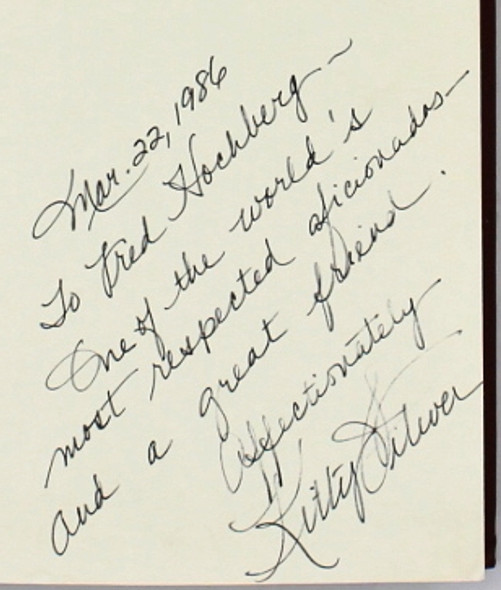 Mar. 22, 1986
To Fred Hochberg ~
One of the world's
most respected aficionados—
and a great friend.
Affectionately
Kitty Silver